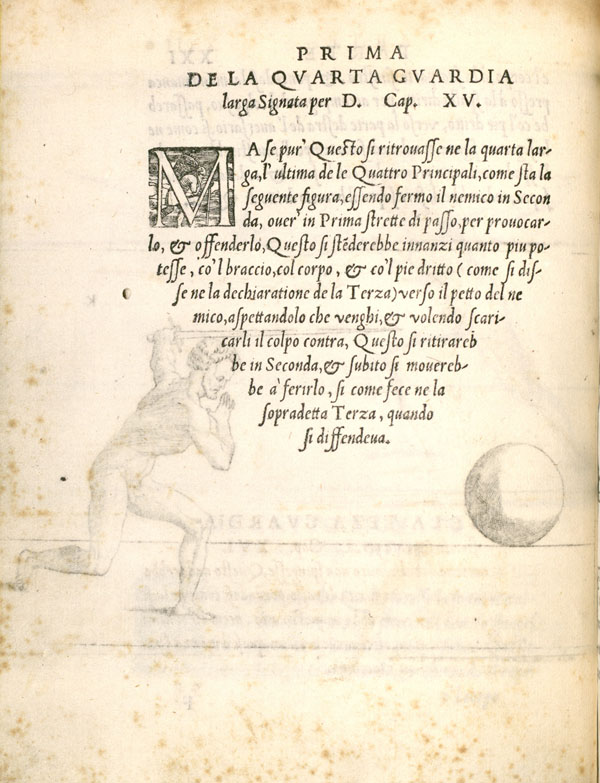 PRIMA
DE LA QVARTA GVARDIA
larga Signata per D. Cap. XV.
MA se pur' Questo si ritrouasse ne la quarta lar-
ga, l'ultima de le Quattro Principali, come sta la
seguente figura, essendo fermo il nemico in Secon
da, ouer' in Prima strette di passo, per prouocar-
lo, & offenderlo, Questo si stẽderebbe innanzi quanto piu po-
tesse, co'l braccio, col corpo, & co'l pie dritto (come si dis-
se ne la dechiaratione de la Terza) verso il petto del ne
mico, aspettandolo che venghi, & volendo scari-
carli il colpo contra, Questo si ritirareb
be in Seconda, & subito si mouereb-
be a' ferirlo, si come fece ne la
sopradetta Terza, quando
si diffendeua.